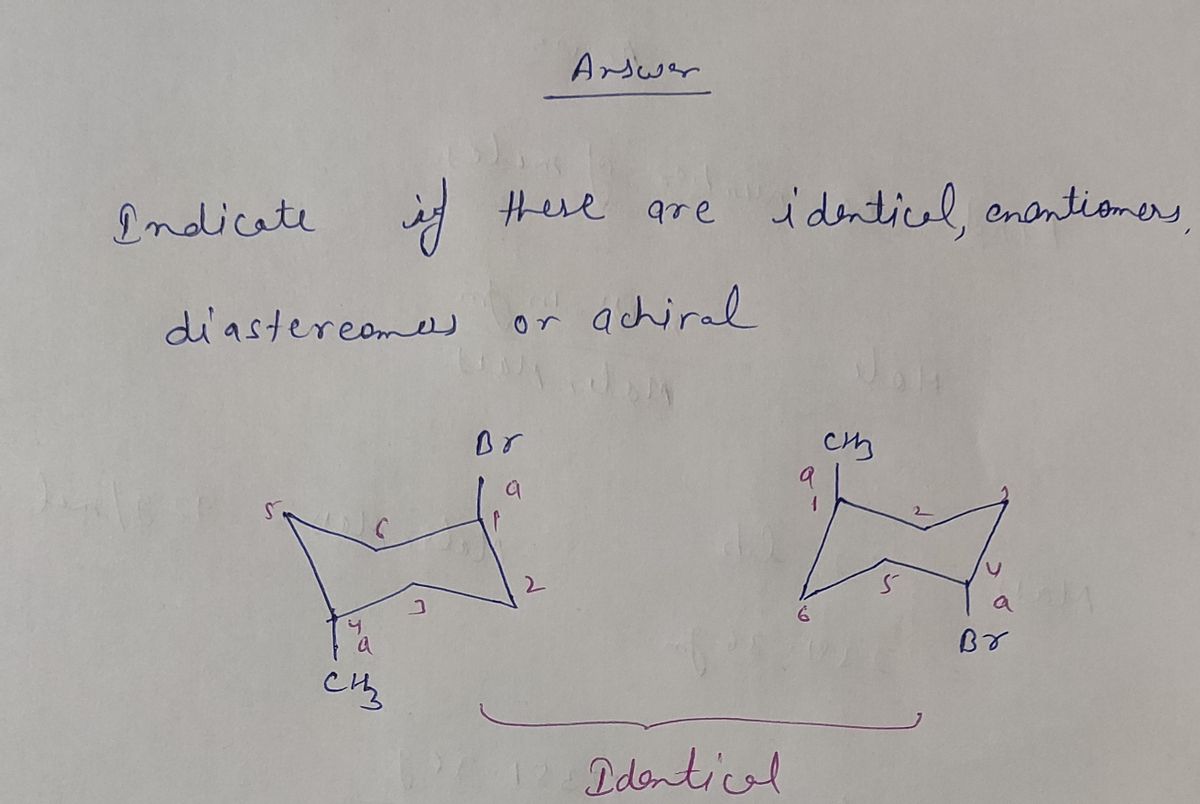 Answer
Indicate if these are identical, enantiomers,
diastereomers or achiral
Br CH3
a a
5 6 1 1 2 3
3 2 5 4
4 6 a
a Br
CH3
Identical